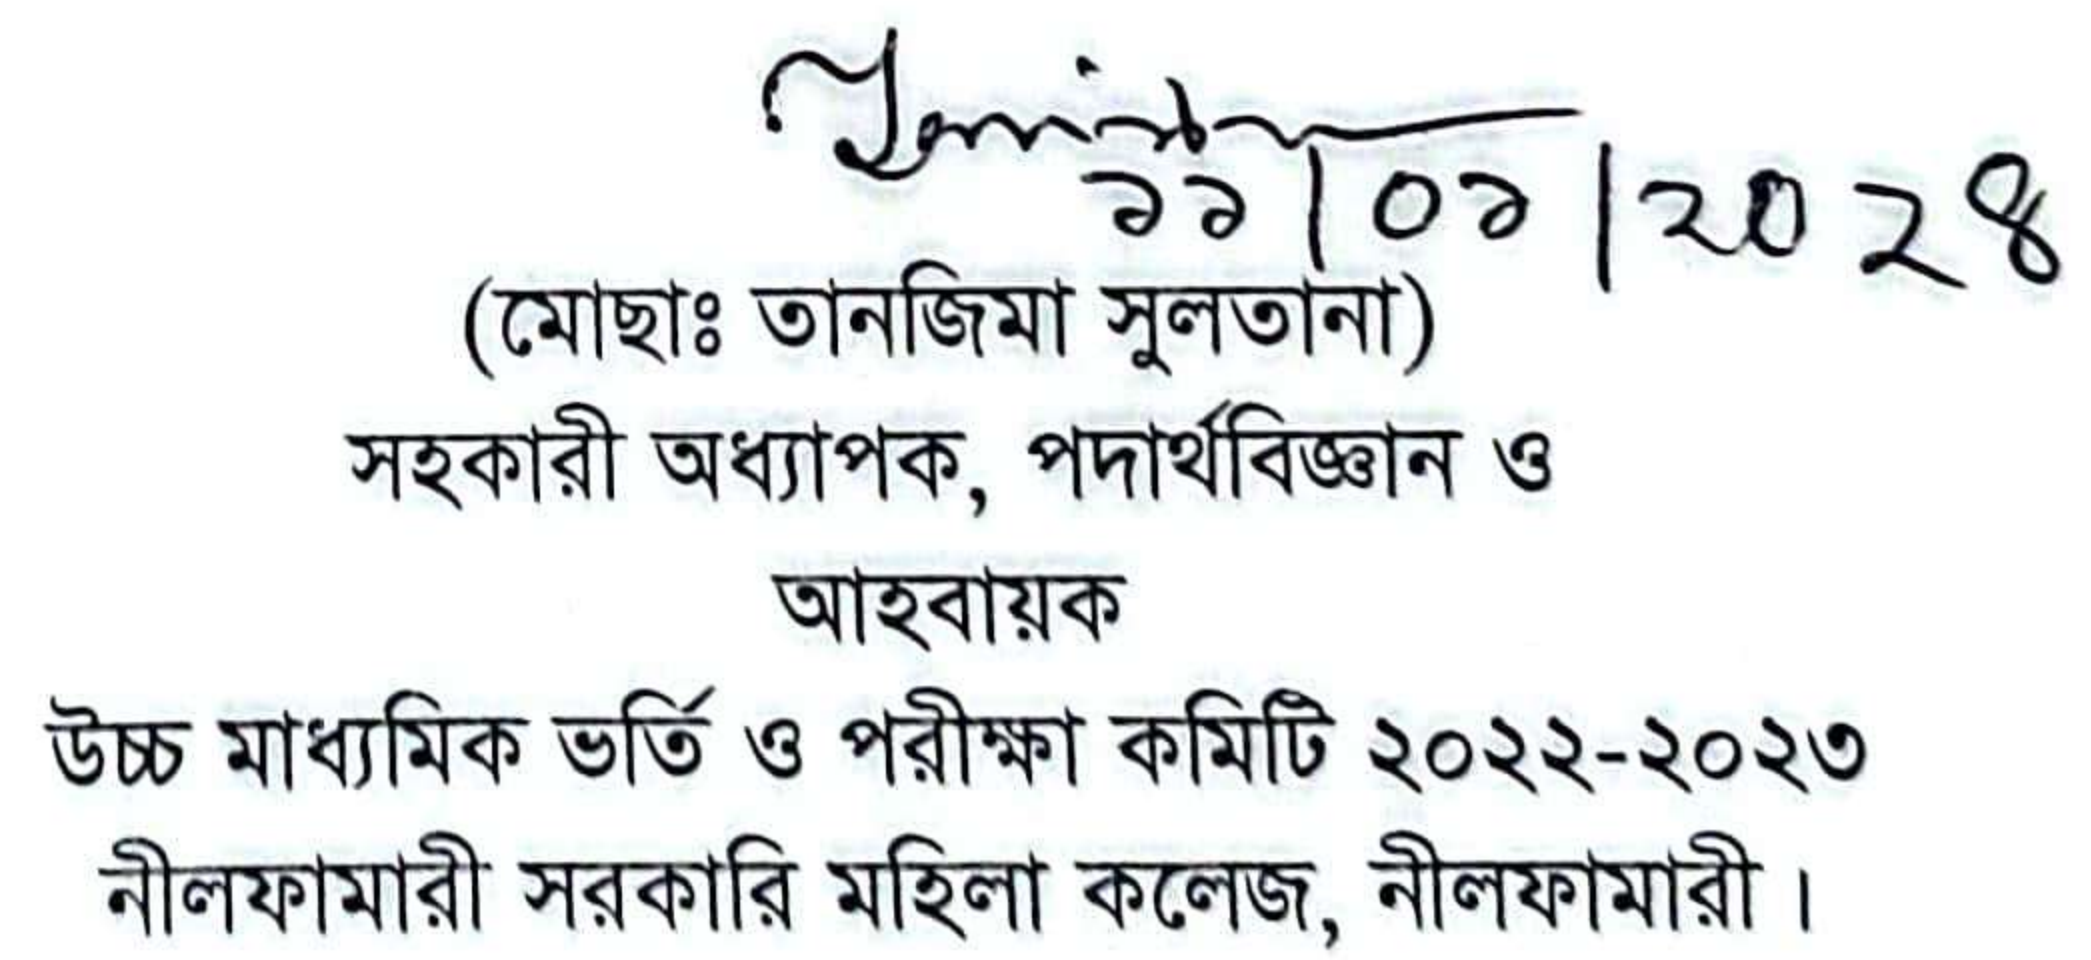 ১১/০১/২০২৪
(মোছাঃ তানজিমা সুলতানা)
সহকারী অধ্যাপক, পদার্থবিজ্ঞান ও
আহবায়ক
উচ্চ মাধ্যমিক ভর্তি ও পরীক্ষা কমিটি ২০২২-২০২৩
নীলফামারী সরকারি মহিলা কলেজ, নীলফামারী।